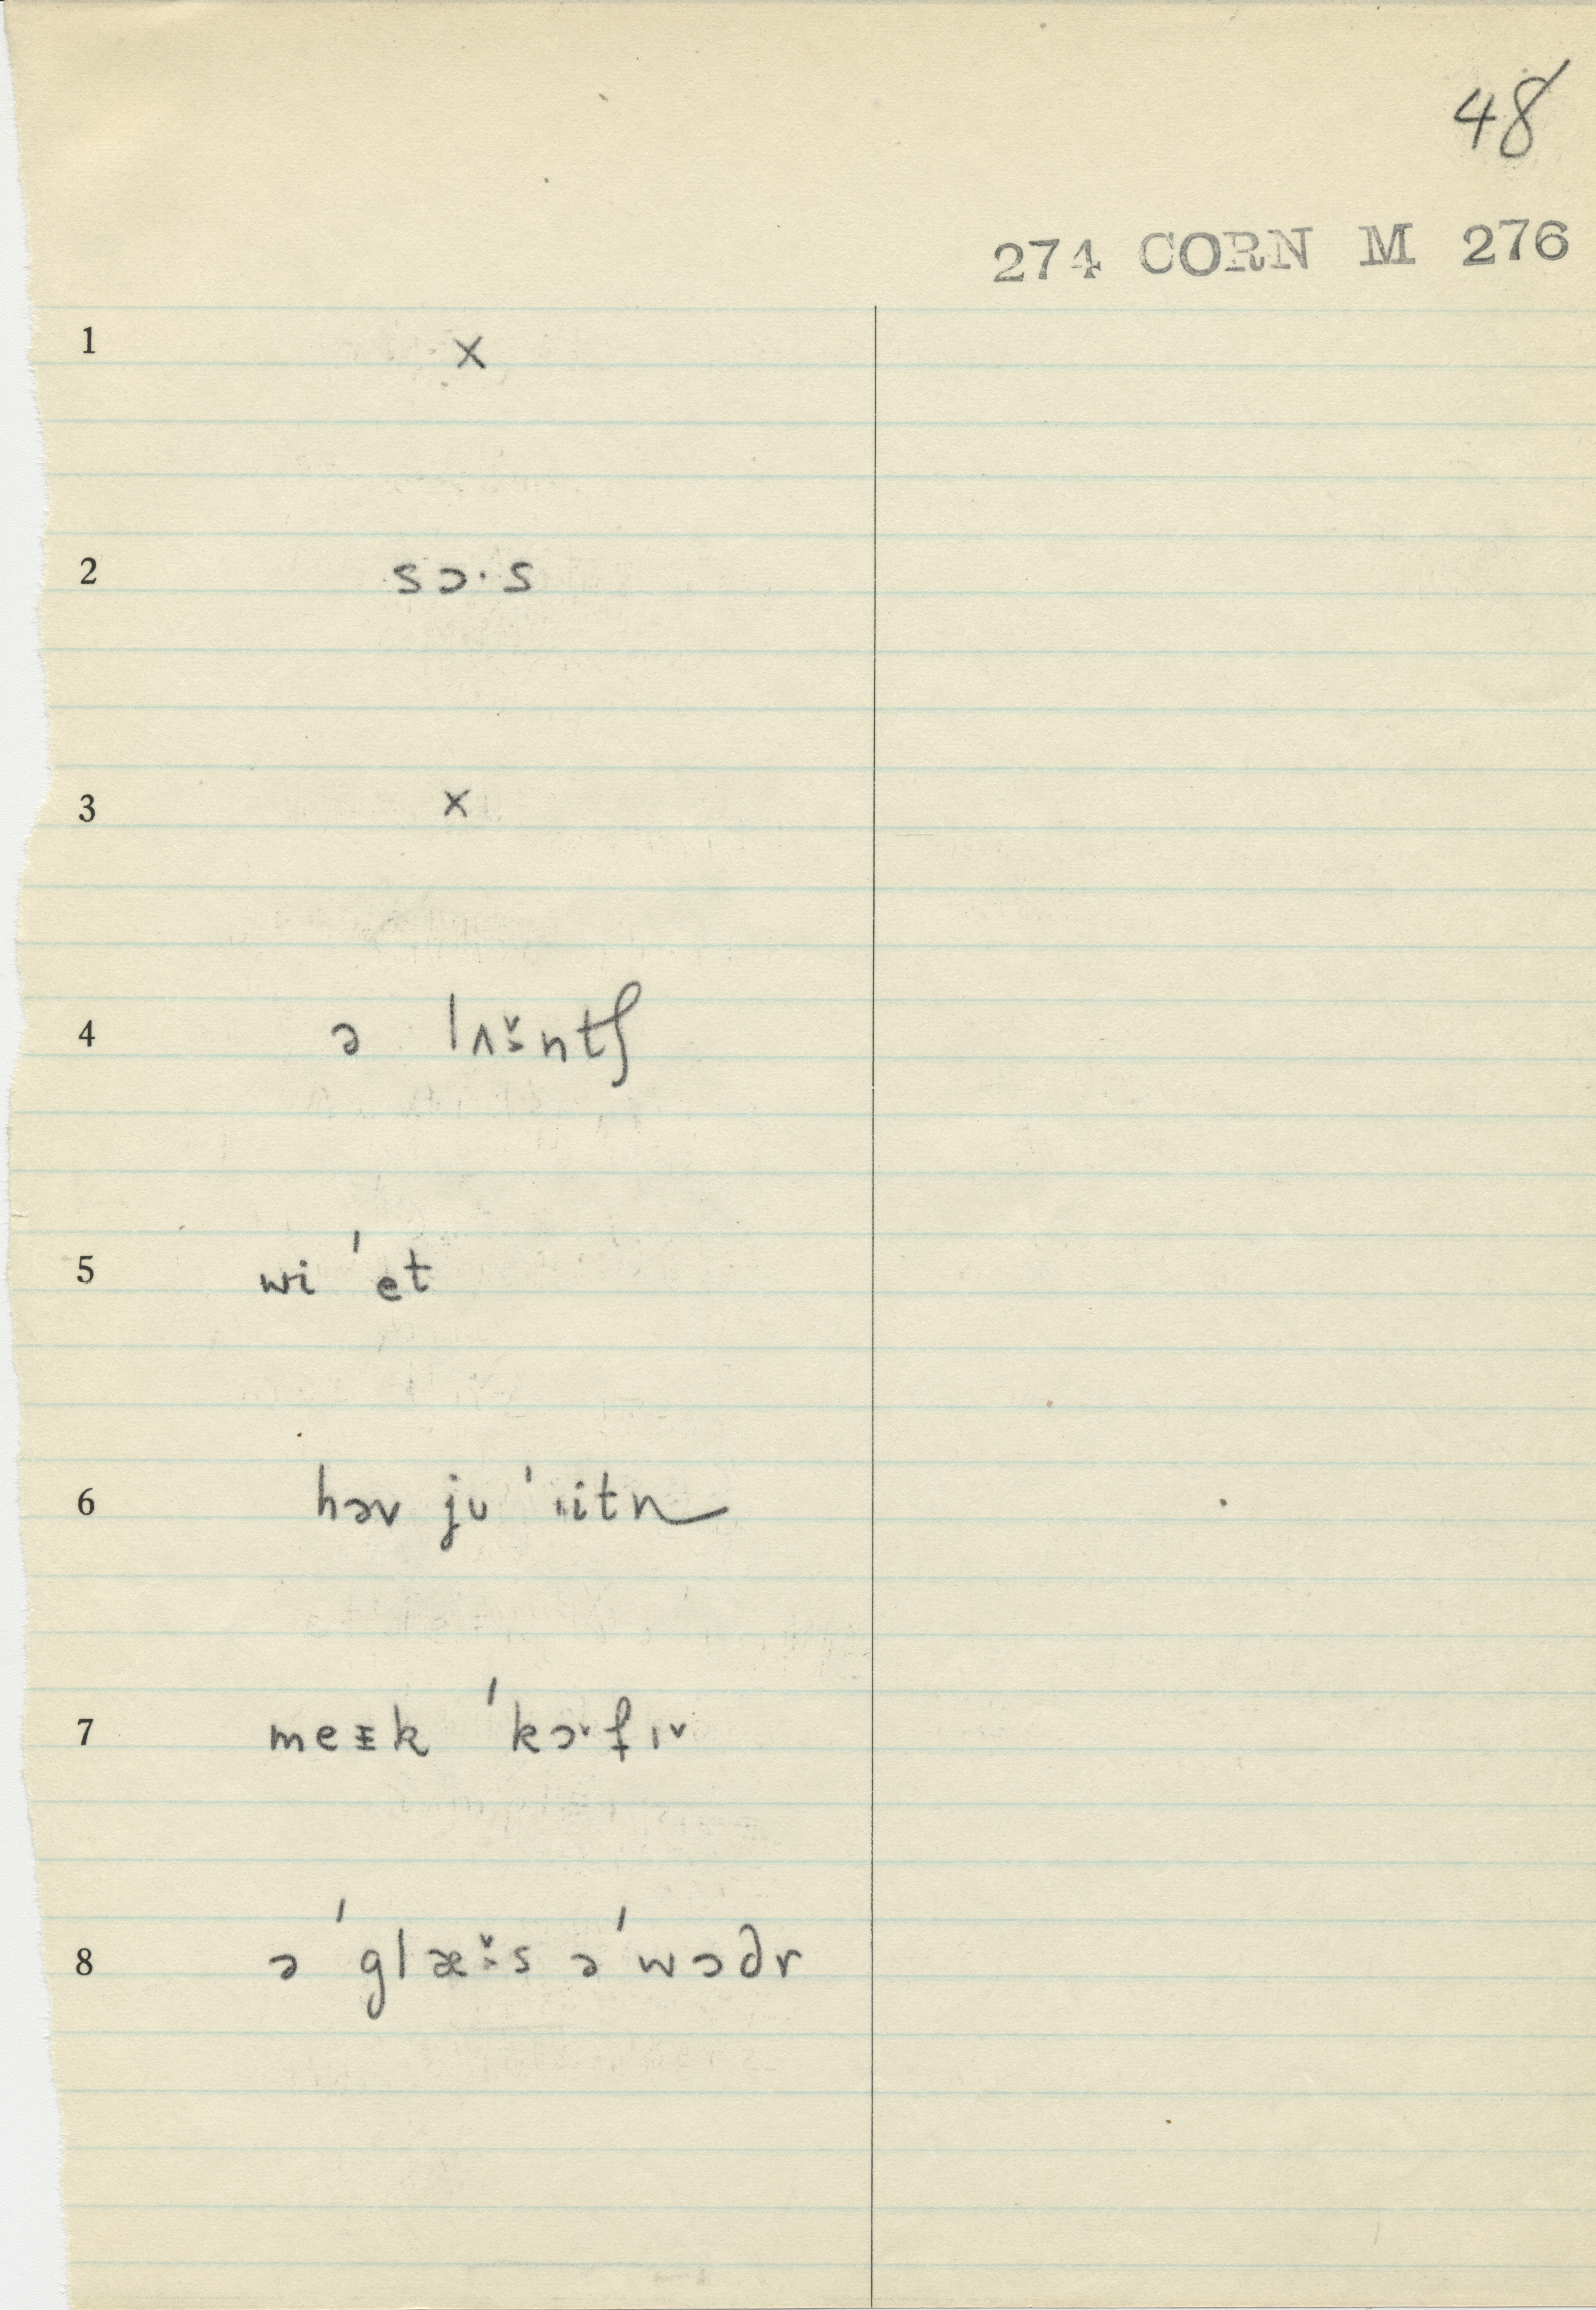 48
274 CORN M 276
1 x
2 sɔ·s
3 x
4 ə lʌ̌ːntʃ
5 wi ˈet
6 həv ju ˈiitn
7 meɪk ˈkɔ˅fɪ˅
8 ə ˈglæ˅ːs əˈwɔðr